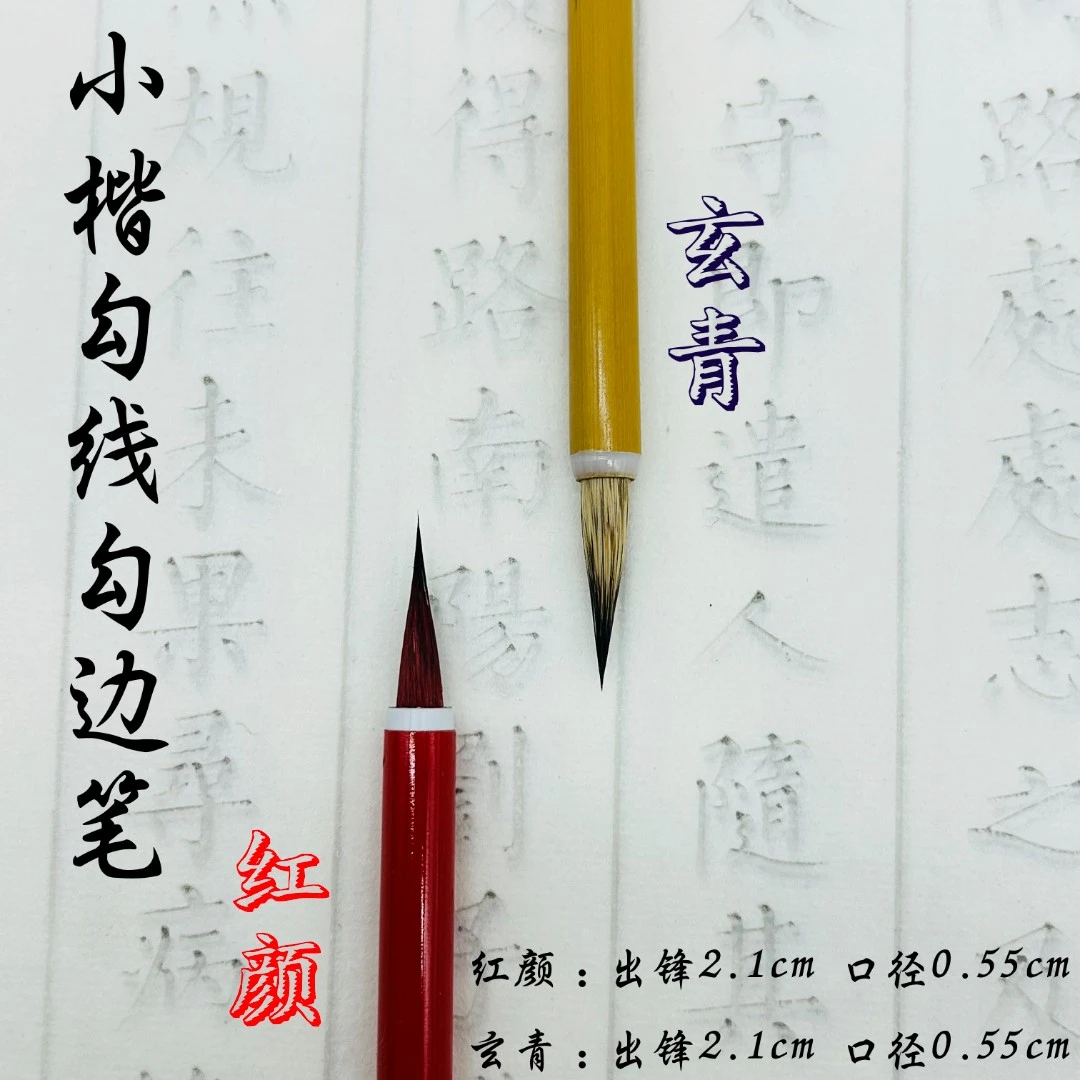 小楷勾线勾边笔
玄青
红颜
红颜：出锋2.1cm 口径0.55cm
玄青：出锋2.1cm 口径0.55cm
路處處志之及
太守即遣人隨其
得路南陽劉子
規往未果尋病